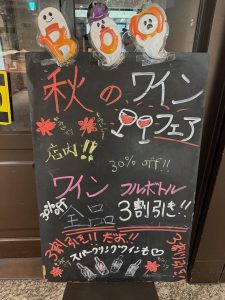 BOO
秋の ワイン
フェア
店内!!
30% off!!
ワイン フルボトル
30% off
全品 3割引き!!
3割引き!! だよ!!
スパークリングワインも♡